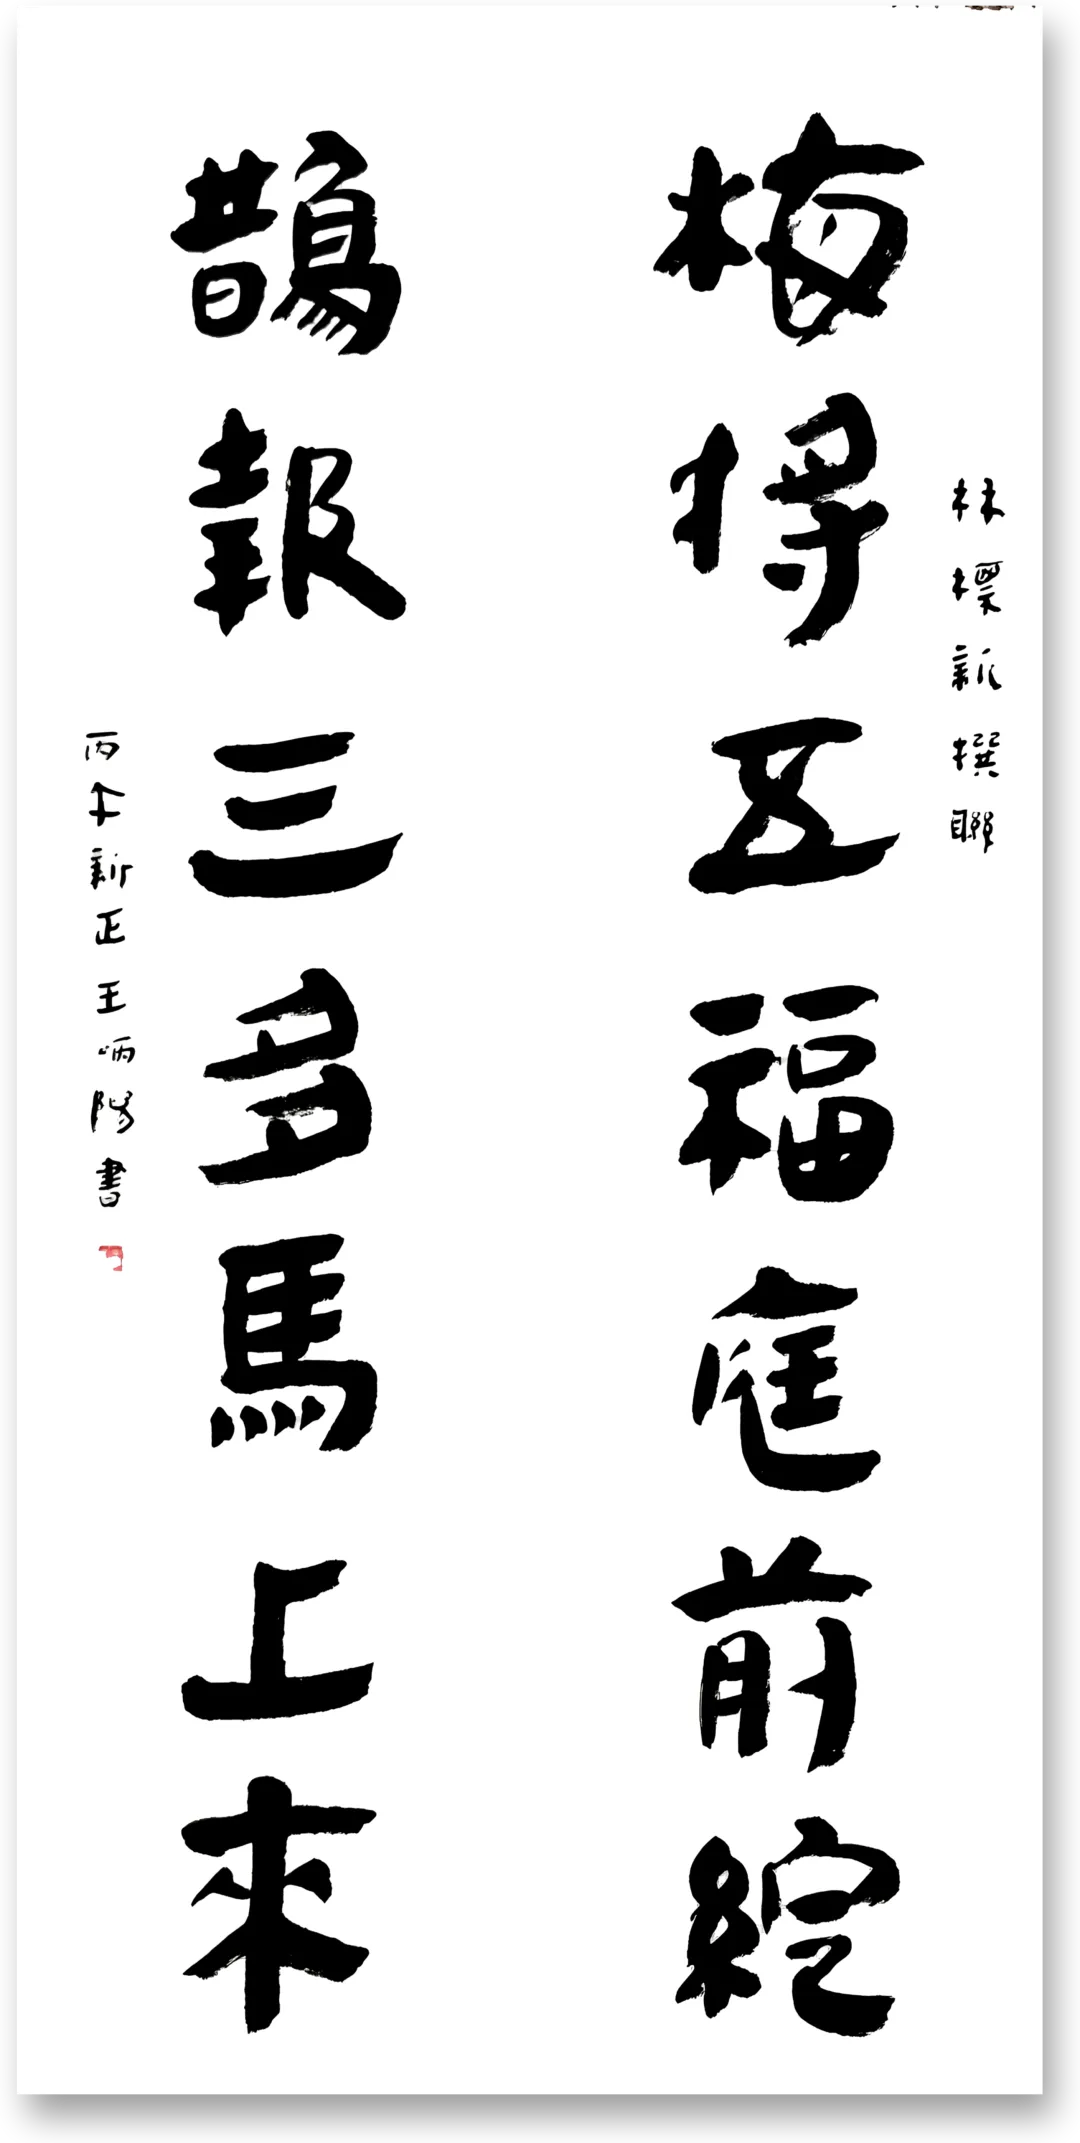 林標新撰聯
梅将五福庭前綻
鵲報三多馬上來
丙午新正王炳陽書